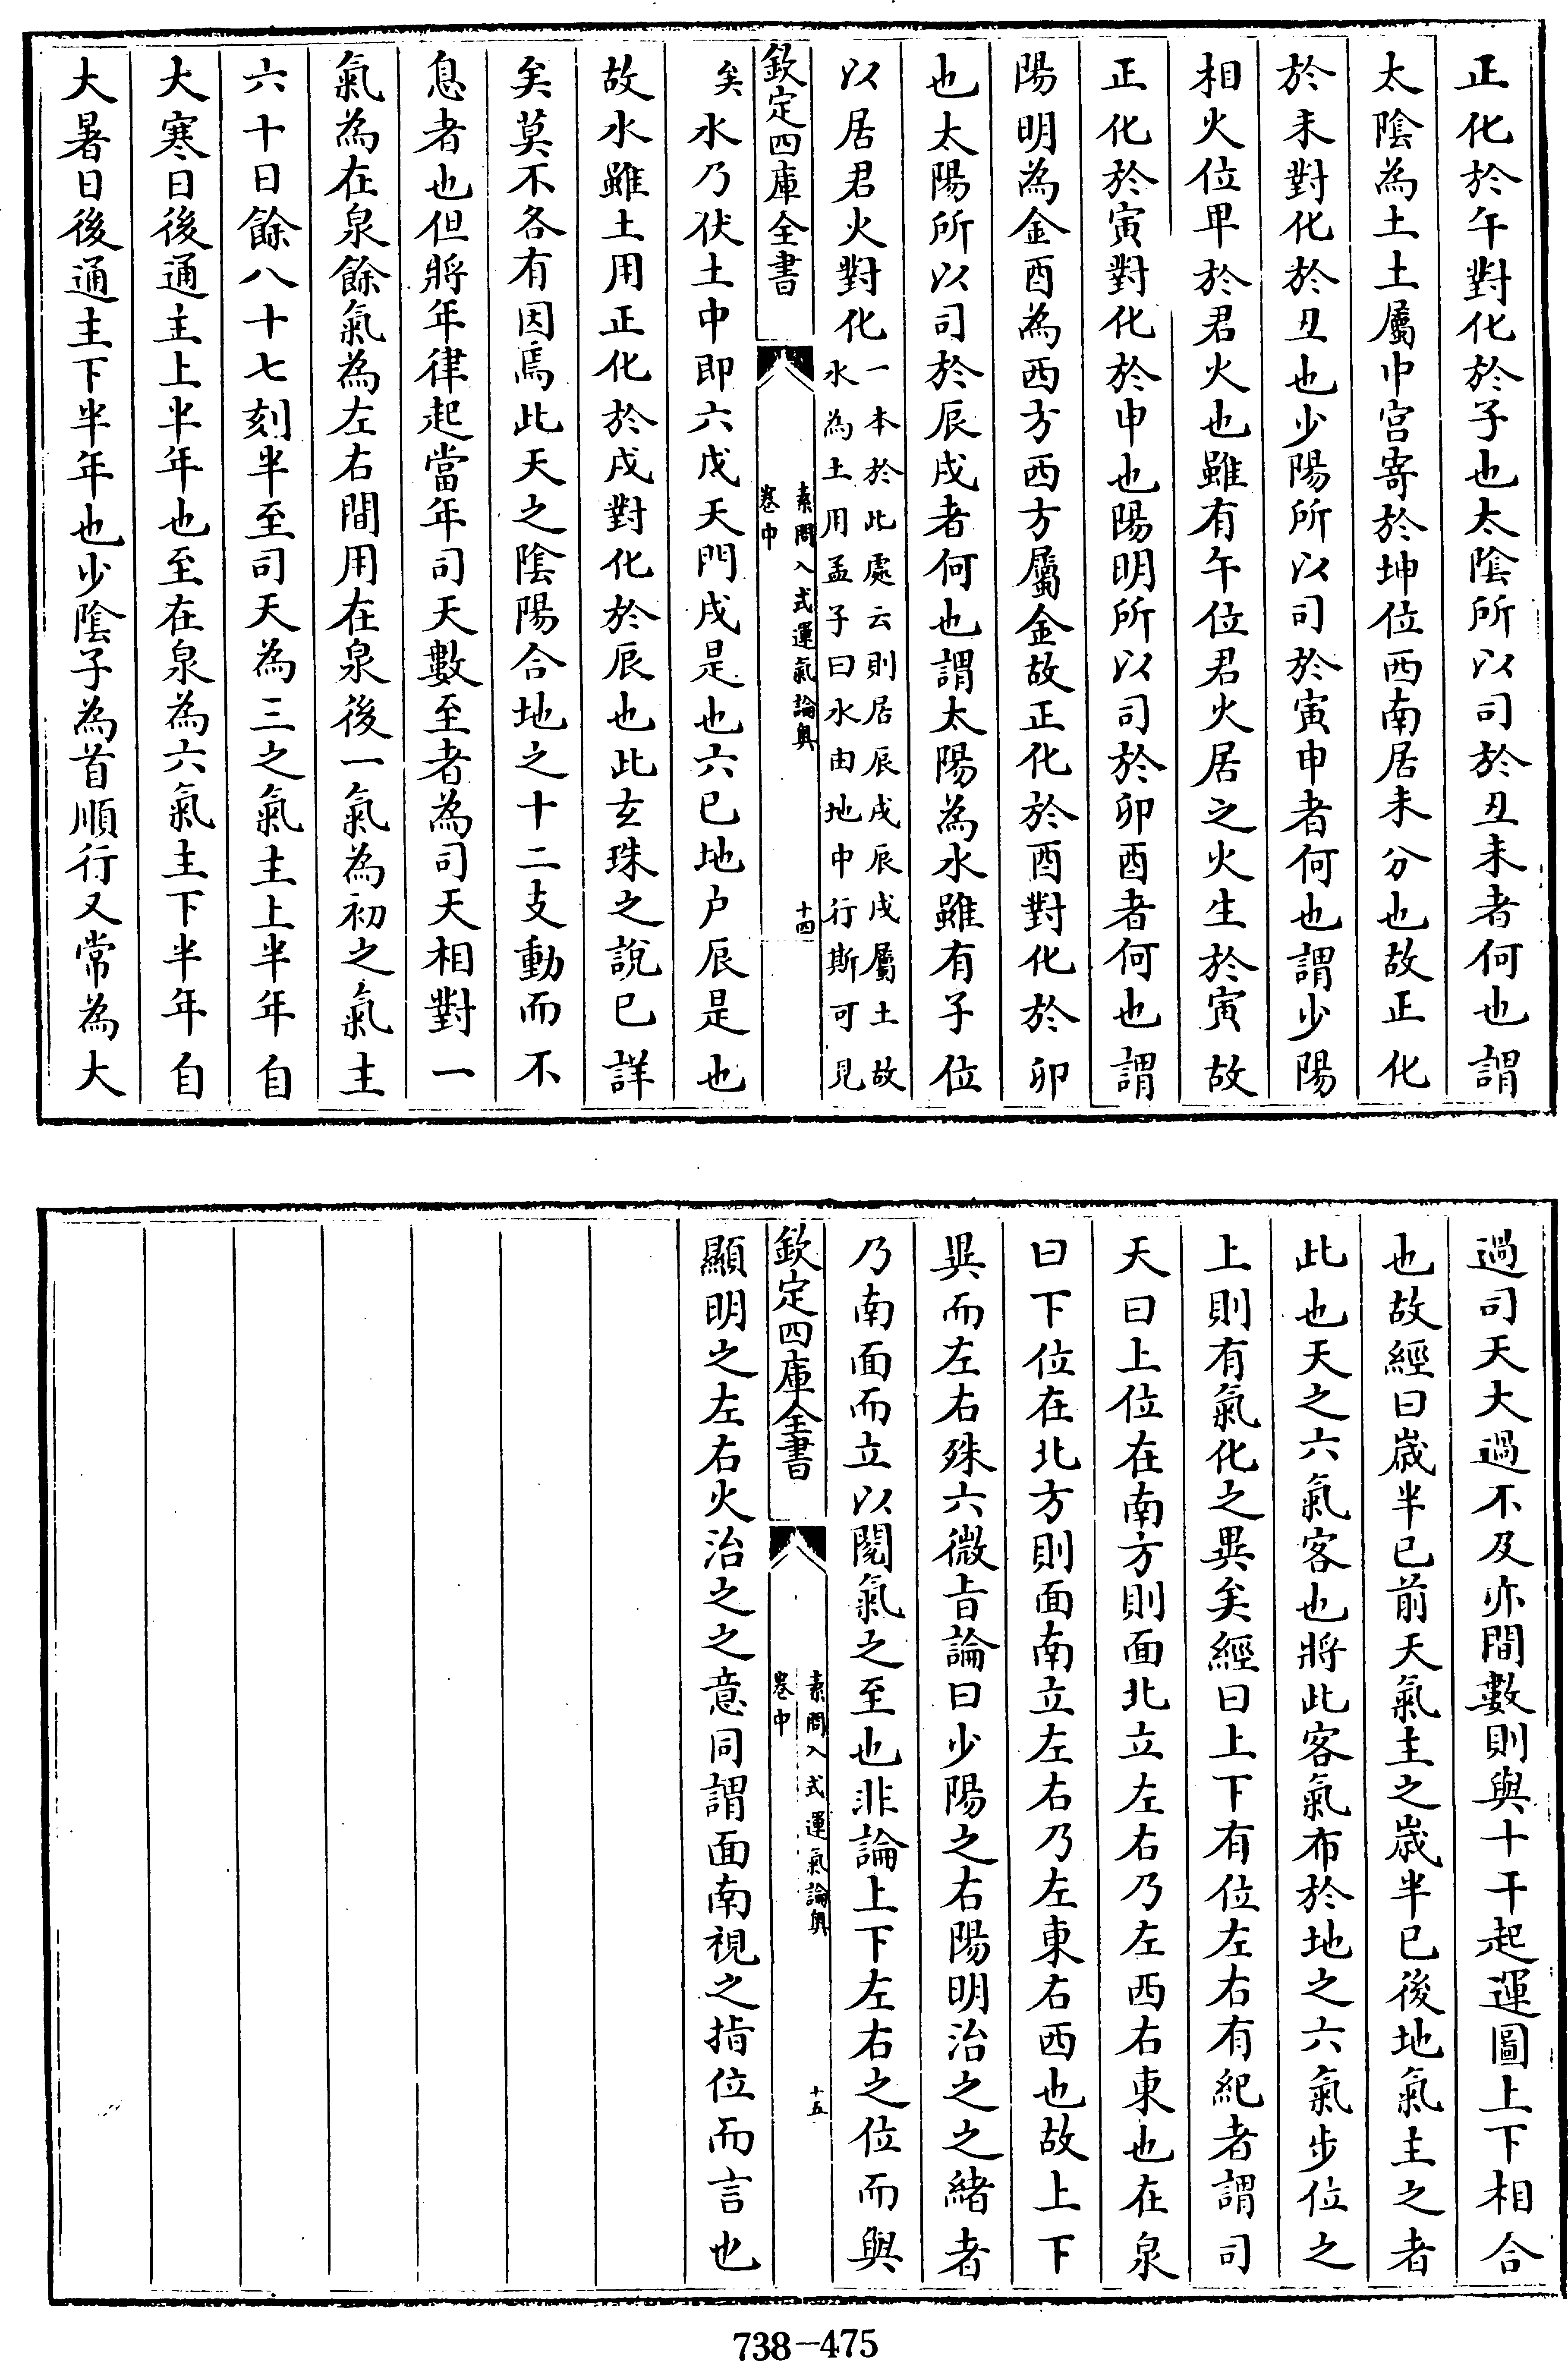 正化於午對化於子也太陰所以司於丑未者何也謂
太陰為土土屬中宮寄於坤位西南居未分也故正化
於未對化於丑也少陽所以司於寅申者何也謂少陽
相火位卑於君火也雖有午位君火居之火生於寅故
正化於寅對化於申也陽明所以司於卯酉者何也謂
陽明為金酉為西方西方屬金故正化於酉對化於卯
也太陽所以司於辰戌者何也謂太陽為水雖有子位
以居君火對化一本於此處云則居辰戌辰戌屬土故
水為土用孟子曰水由地中行斯可見
欽定四庫全書
素問入式運氣論奧
卷中
十四
矣水乃伏土中即六戊天門戌是也六己地户辰是也
故水雖土用正化於戌對化於辰也此玄珠之說已詳
矣莫不各有因焉此天之陰陽合地之十二支動而不
息者也但將年律起當年司天數至者為司天相對一
氣為在泉餘氣為左右間用在泉後一氣為初之氣主
六十日餘八十七刻半至司天為三之氣主上半年自
大寒日後通主上半年也至在泉為六氣主下半年自
大暑日後通主下半年也少陰子為首順行又常為大
過司天大過不及亦間數則與十干起運圖上下相合
也故經曰歲半已前天氣主之歲半已後地氣主之者
此也天之六氣客也將此客氣布於地之六氣步位之
上則有氣化之異矣經曰上下有位左右有紀者謂司
天曰上位在南方則面北立左右乃左西右東也在泉
曰下位在北方則面南立左右乃左東右西也故上下
異而左右殊六微旨論曰少陽之右陽明治之之緒者
乃南面而立以閱氣之至也非論上下左右之位而與
欽定四庫全書
素問入式運氣論奧
卷中
十五
顯明之左右火治之之意同謂面南視之指位而言也
738-475